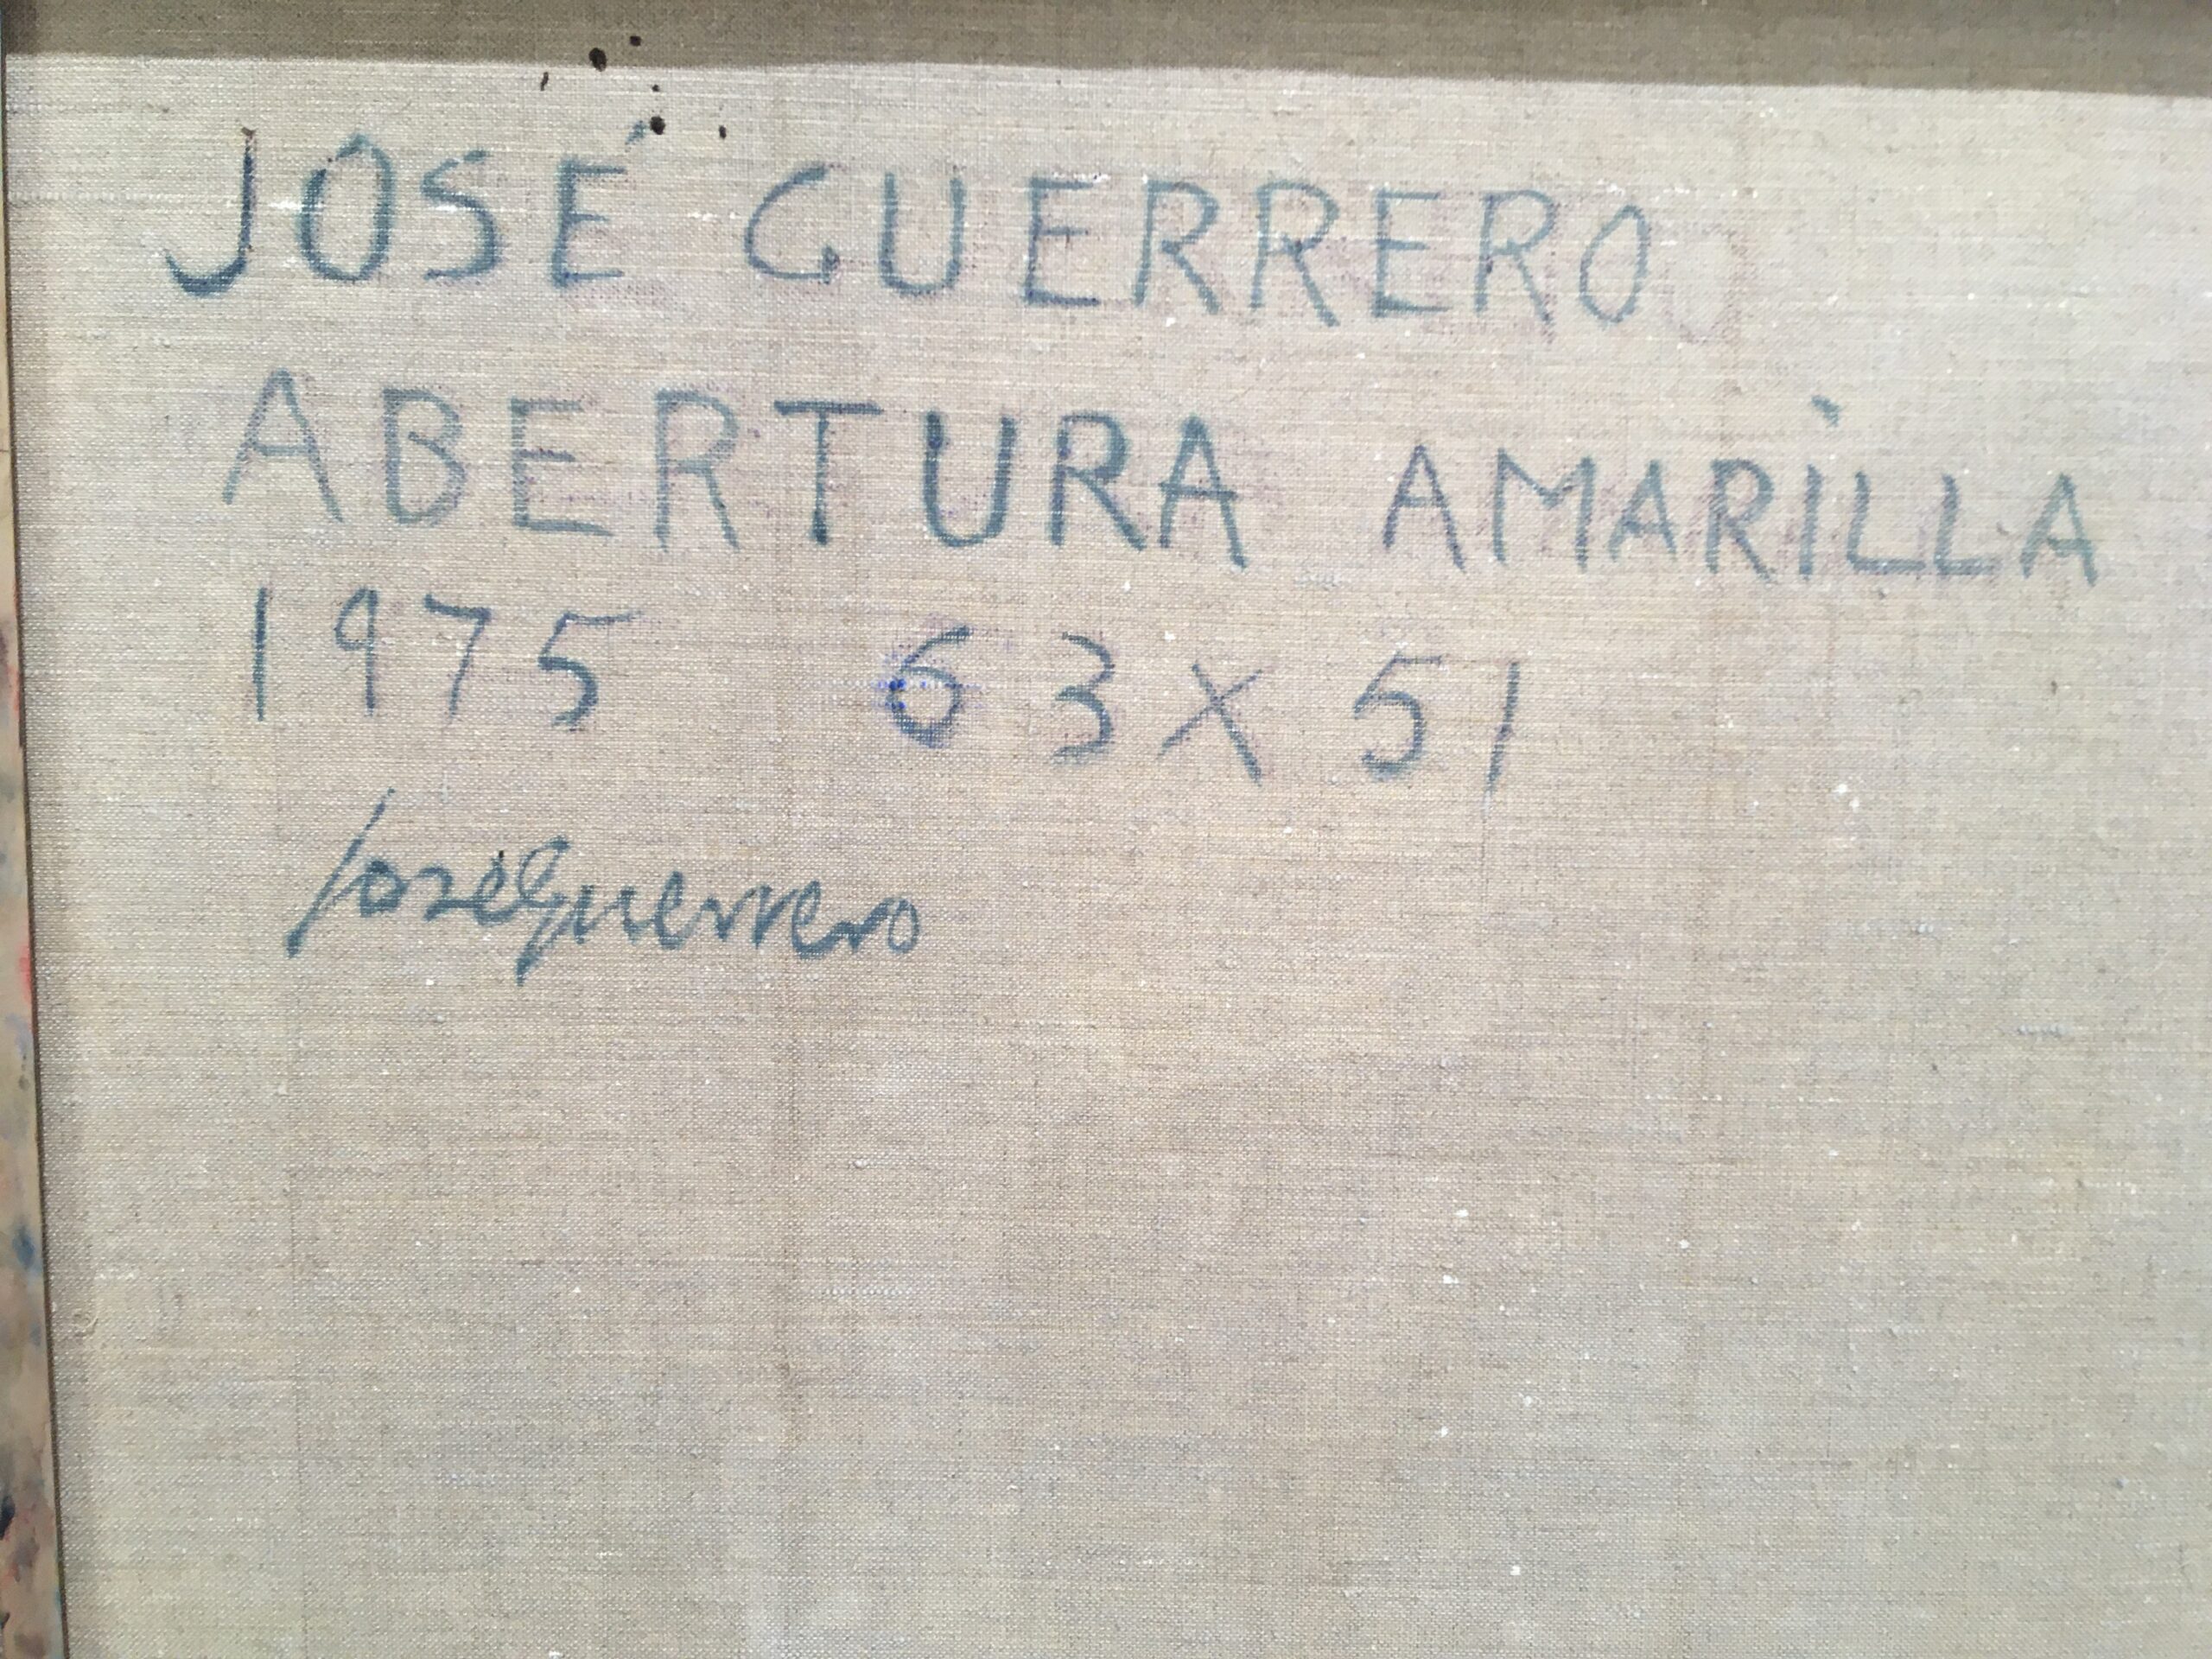 JOSÉ GUERRERO
ABERTURA AMARILLA
1975 63 X 51
José Guerrero